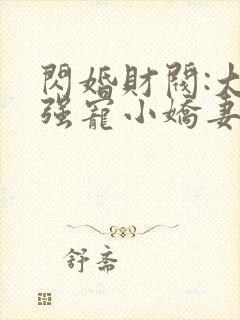 閃婚財閥:大
强寵小嬌妻
舒斋